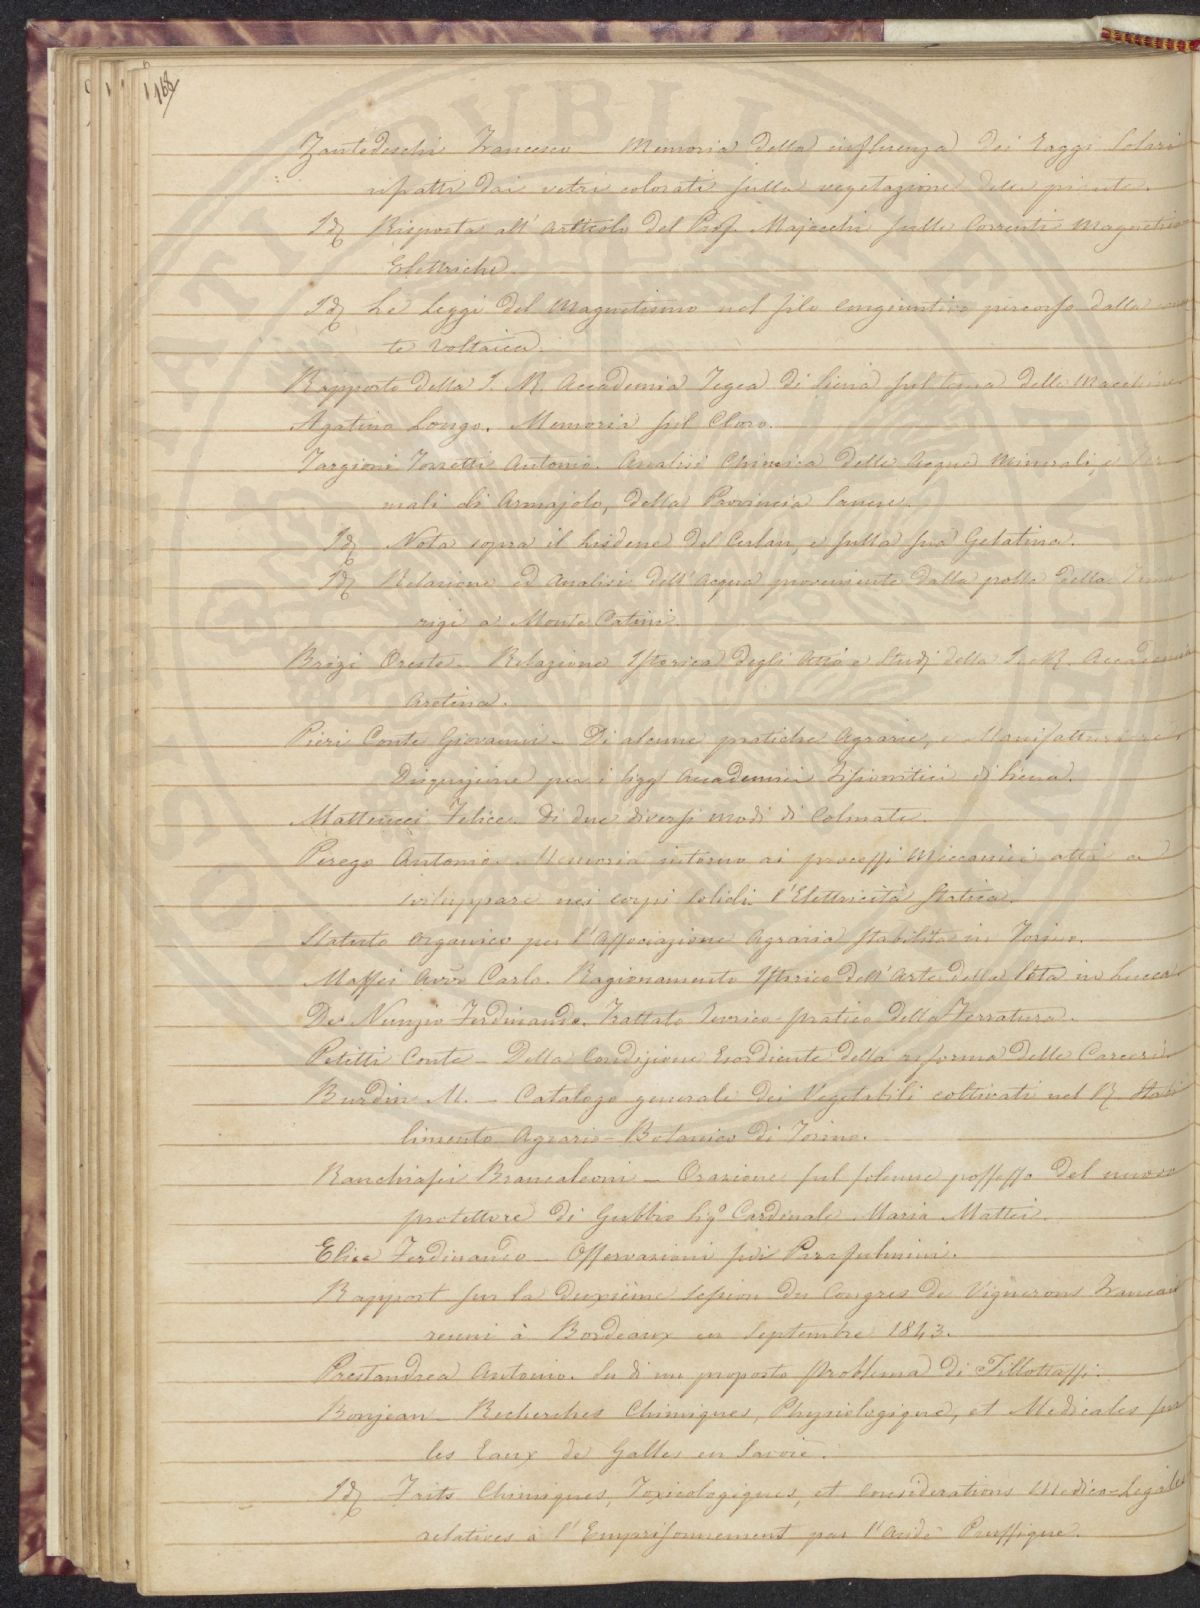 168
Zantedeschi Francesco Memoria della influenza dei raggi Solari
rifratti dai vetri colorati sulla vegetazione delle piante.
Id. Risposta all' Articolo del Prof. Majocchi sulle Correnti Magnetico
Elettriche.
Id. Le Leggi del Magnetismo nel filo congiuntivo percorso dalla
te Voltaica.
Rapporto della I. R. Accademia Tegea di Siena sul tema delle Macchine
Agatino Longo. Memoria sul Cloro.
Targioni Tozzetti Antonio. Analisi Chimica delle Acque Minerali, e Ter
mali di Armajolo, della Provincia Sanese.
Id. Nota sopra il Lisdene del Ceilan, e sulla sua Gelatina.
Id. Relazione ed Analisi dell' Acqua proveniente dalla polla della
rigi a Monte Catini.
Brizi Oreste – Relazione Istorica degli Atti e Studj della I. R. Accademia
Aretina.
Pieri Conte Giovanni – Di alcune pratiche Agrarie, e Manifatturiere
Disquizione per i Sigg Accademici Fisiocritici di Siena.
Matteucci Felice. Di due diversi modi di Colmate.
Perego Antonio. Memoria intorno ai processi Meccanici atti a
sviluppare nei corpi solidi l'Elettricità Statica.
Statuto organico per l'Associazione Agraria stabilita in Torino.
Maffei Avv. Carlo. Ragionamento Istorico dell' Arte della Seta in Lucca
De Nunzio Ferdinando. Trattato Teorico pratico della Ferratura.
Petitti Conte – Della Condizione Esordiente della riforma delle Carceri.
Burdin M. – Catalogo generale dei Vegetabili coltivati nel R. Stabi
limento Agrario-Botanico di Torino.
Ranchiasci Brancaleoni – Orazione sul solenne possesso del nuovo
protettore di Gubbio Sigo Cardinale Maria Mattei.
Elice Ferdinando – Osservazioni sui Parafulmini.
Rapport sur la deuxième Session du Congres de Vignerons Francais
reuni à Bordeaux en Septembre 1843.
Prestandrea Antonio. Su di un proposto problema di Fillottassi.
Bonjean – Recherches Chimiques, Physiologique, et Medicales sur
les Eaux de Galles en Savoie.
Id. Faits Chimiques, Toxicologiques, et Considerations Medico-Legales
relatives à l'Empoisonnement par l'Acide Prussique.